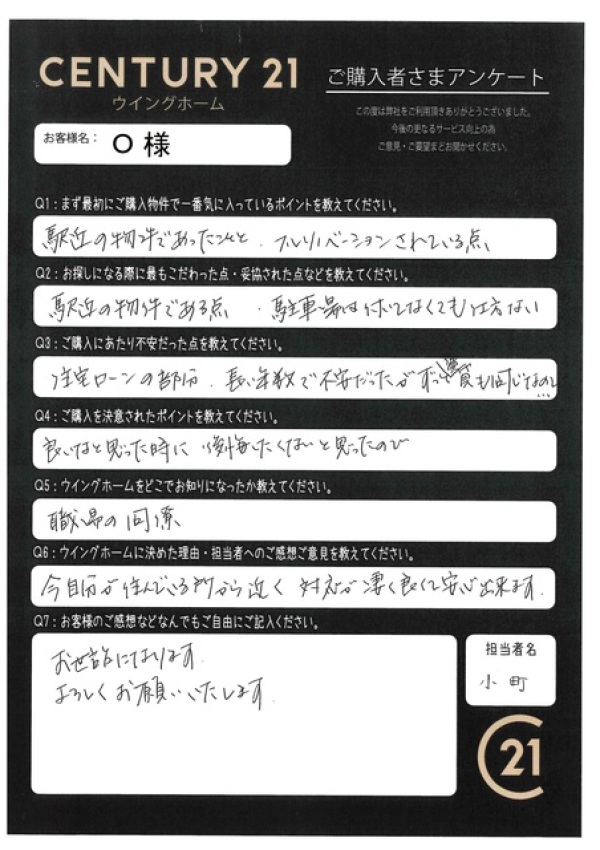 CENTURY 21
ウイングホーム
ご購入者さまアンケート
この度は弊社をご利用頂きありがとうございました。
今後の更なるサービス向上の為
ご意見・ご要望まどお聞かせください。
お客様名： O 様
Q1：まず最初にご購入物件で一番気に入っているポイントを教えてください。
駅近の物件であったことと、フルリノベーションされている点、
Q2：お探しになる際に最もこだわった点・妥協された点などを教えてください。
駅近の物件である点 ・駐車場は付いてなくても仕方ない
Q3：ご購入にあたり不安だった点を教えてください。
住宅ローンの部分、長い年数で不安だったが ずっと賃貸も同じなので…
Q4：ご購入を決意されたポイントを教えてください。
良いなと思った時に 後悔したくないと思ったので
Q5：ウイングホームをどこでお知りになったか教えてください。
職場の同僚
Q6：ウイングホームに決めた理由・担当者へのご感想ご意見を教えてください。
今自分が住んでいる所から近く 対応が凄く良くて安心出来ます.
Q7：お客様のご感想などなんでもご自由にご記入ください。
お世話になります.
よろしくお願いいたします
担当者名
小町
C21